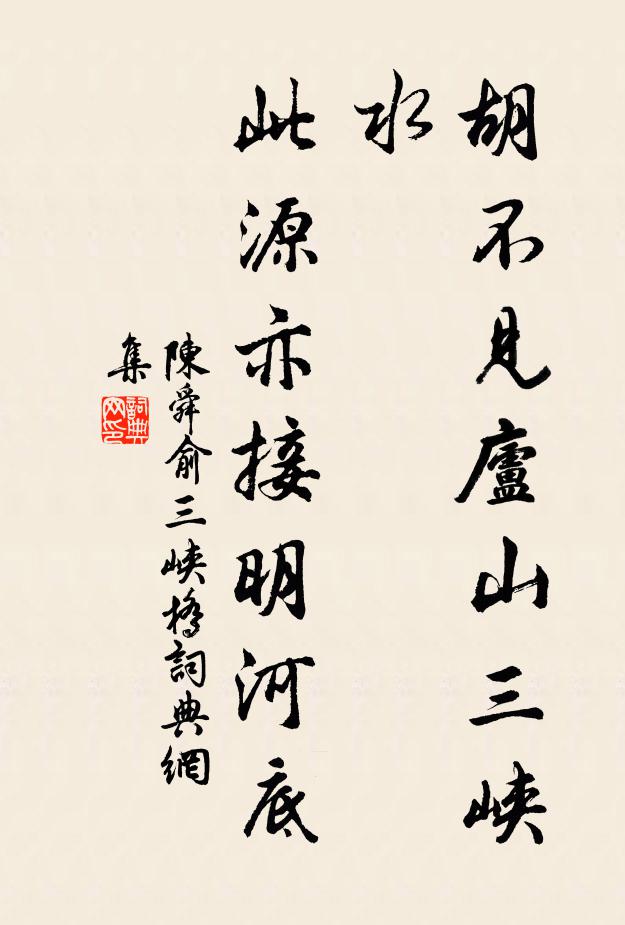 胡不見廬山三峽
水
此源亦接明河底
陳舜俞三峽橋詞典網
集
詞典
网印